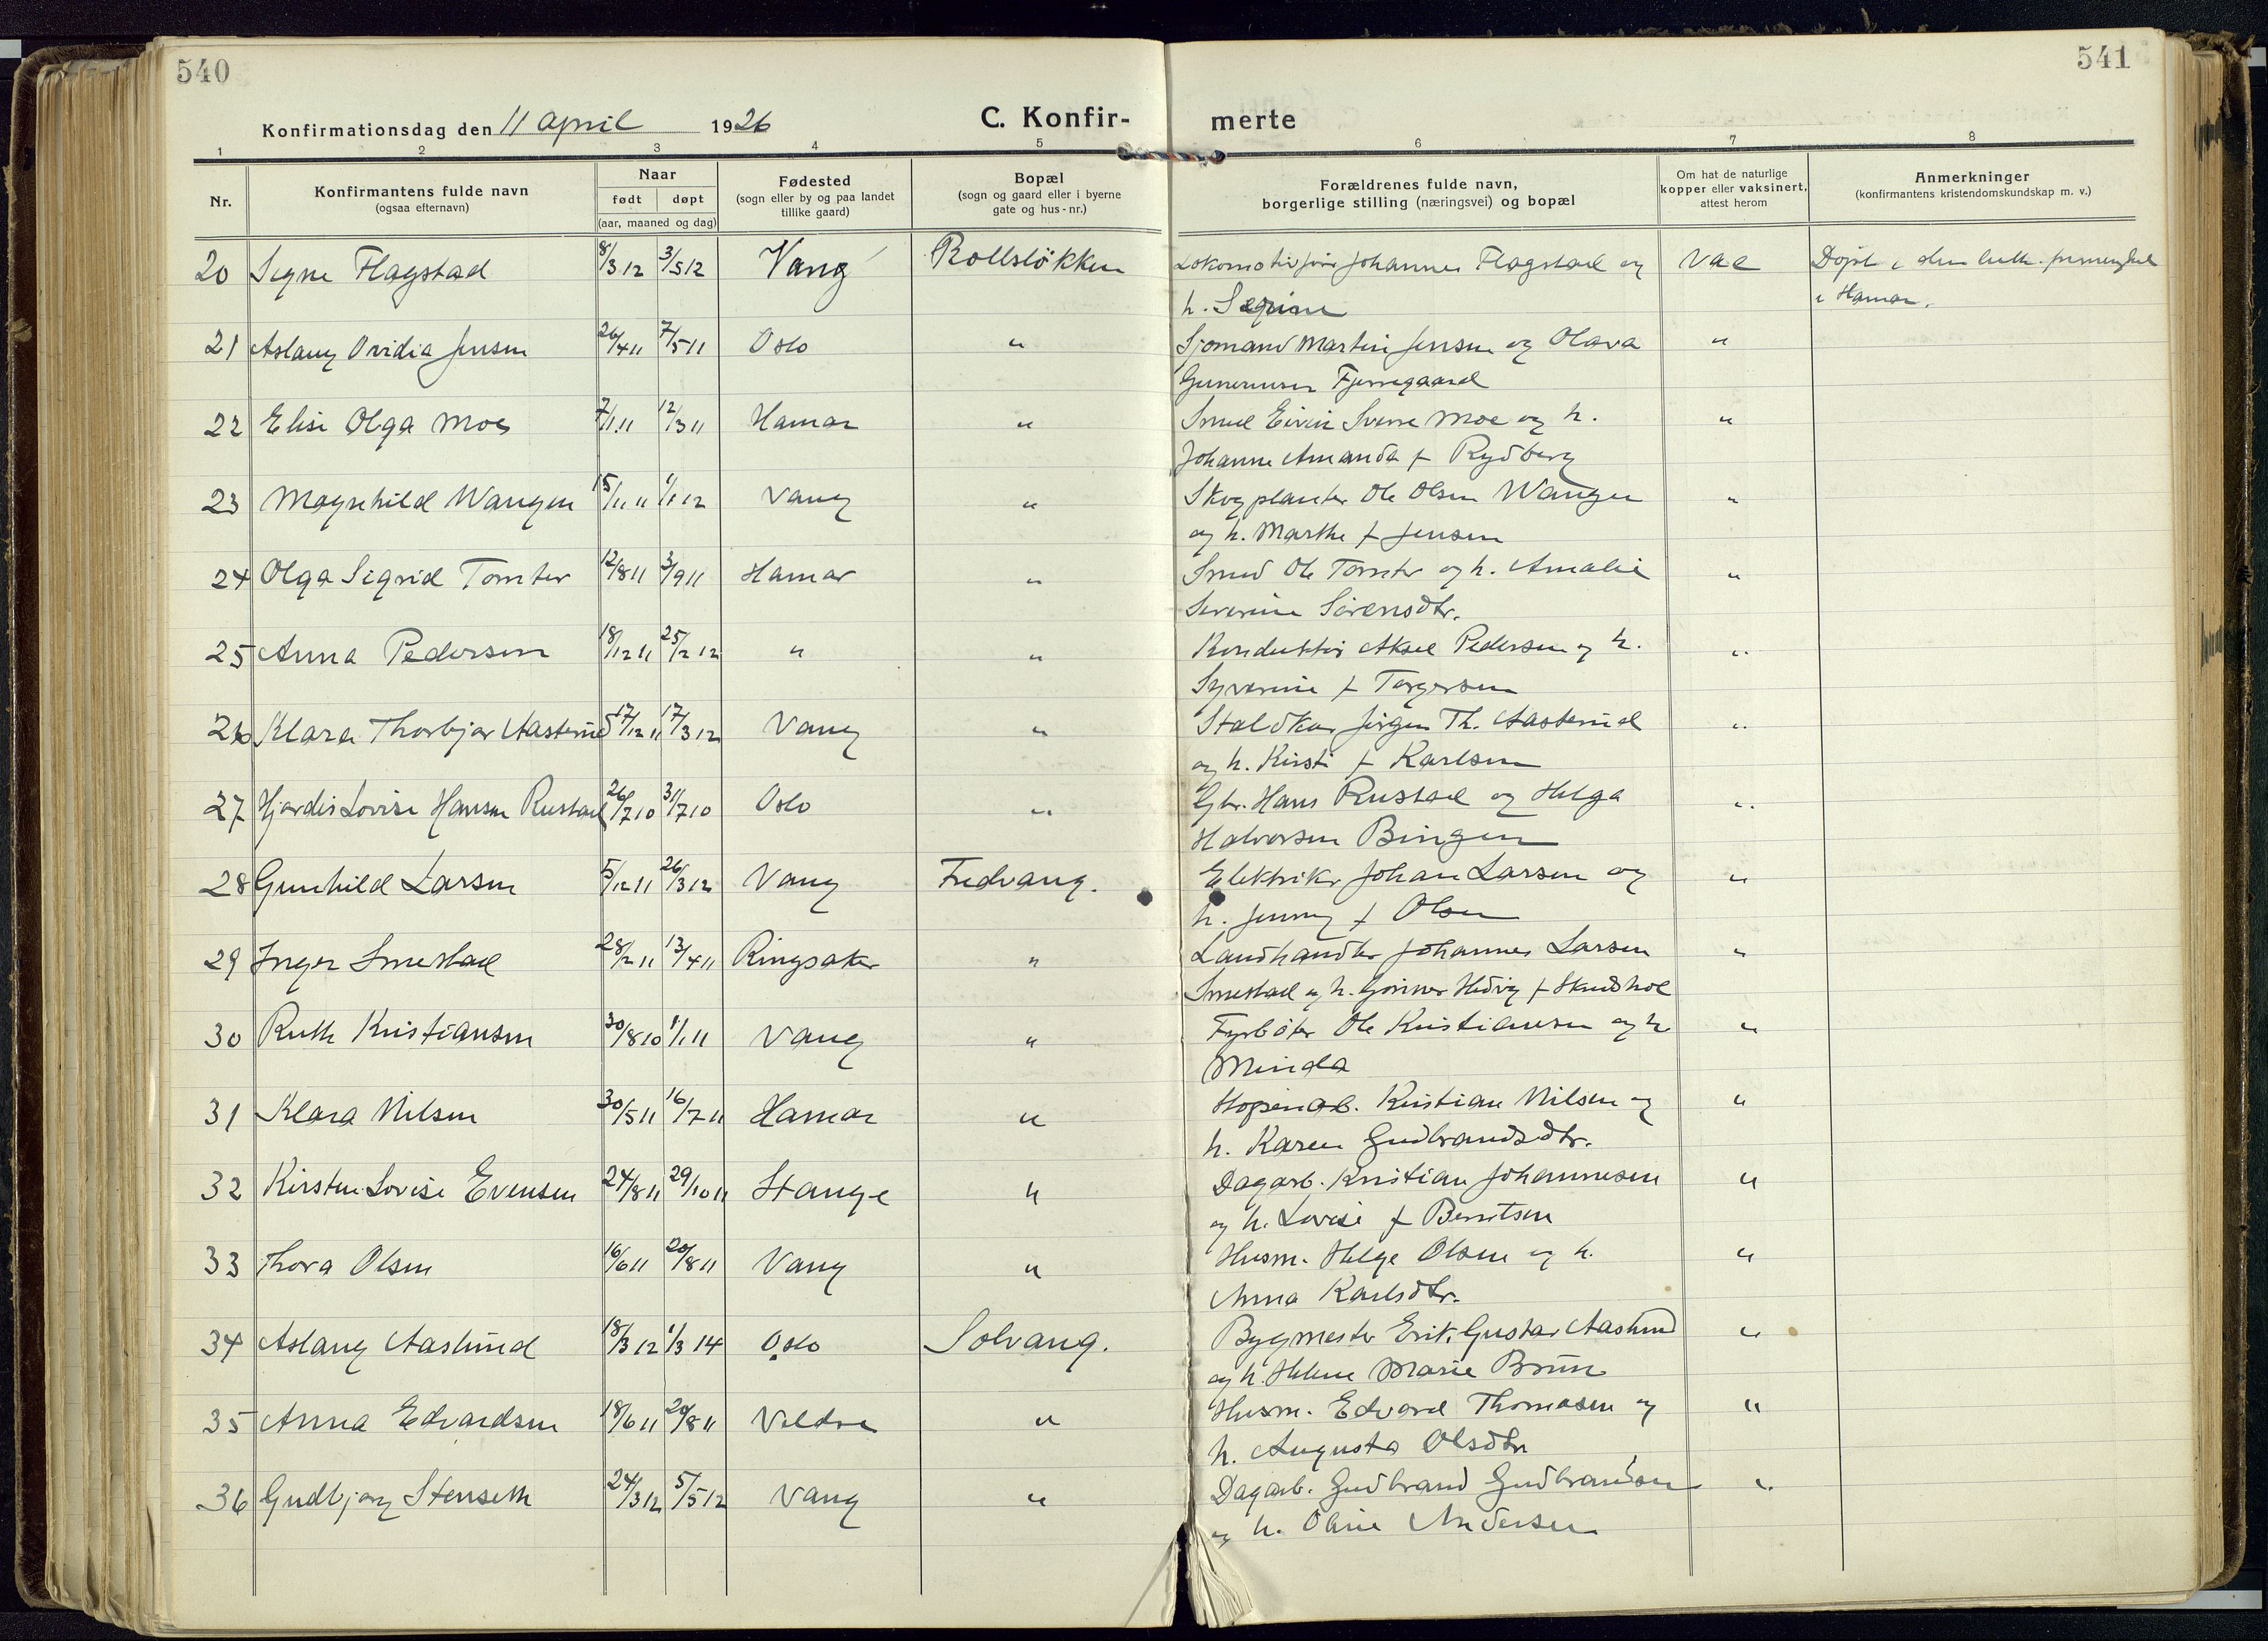 540
541
Konfirmationsdag den 11 april 1926
C. Konfir-
merte
1 2 3 4 5 6 7 8
Nr.
Konfirmantens fulde navn
(ogsaa efternavn)
Naar
født døpt
(aar, maaned og dag)
Fødested
(sogn eller by og paa landet
tillike gaard)
Bopæl
(sogn og gaard eller i byerne
gate og hus-nr.)
Forældrenes fulde navn,
borgerlige stilling (næringsvei) og bopæl
Om hat de naturlige
kopper eller vaksinert,
attest herom
Anmerkninger
(konfirmantens kristendomskundskap m. v.)
20 Signe Flagstad 8/3 12 3/5 12 Vang Rollsløkken Lokomotivfør Johannes Flagstad og Vac Døpt i den luth. frimenighet
h. Segrine i Hamar.
21 Aslaug Ovidia Jensen 26/4 11 7/5 11 Oslo " Sjömand Martin Jensen og Olava "
Fjerregaard
22 Elise Olga Moe 7/1 11 12/3 11 Hamar " Smed Eivin Sverre Moe og h. "
Johanne Amanda f Rydberg
23 Magnhild Wangen 15/11 11 1/1 12 Vang " Skogplanter Ole Olsen Wangen "
og h. Marthe f Jensen
24 Olga Sigrid Tomter 12/8 11 3/9 11 Hamar " Smed Ole Tomter og h. Amalie "
Severine Sörensdtr.
25 Anna Pedersen 18/12 11 25/2 12 " " Konduktör Aksel Pedersen og h. "
Syverine f Torgersen
26 Klara Thorbjør Aasterud 17/12 11 17/3 12 Vang " Staldkar Jörgen Th. Aasterud "
og h. Kirsti f Karlsen
27 Hjørdis Lovise Hansen Rustad 26/7 10 31/7 10 Oslo " Gbr. Hans Rustad og Helga "
Halvorsen Bingen
28 Gunhild Larsen 5/12 11 26/3 12 Vang Fredvang. Elektriker Johan Larsen og "
h. Jenny f Olsen
29 Inger Smestad 28/2 11 13/4 11 Ringsaker " Landhandler Johannes Larsen "
Smestad og h. Hedvig f Skudshol
30 Ruth Kristiansen 30/8 10 1/1 11 Vang " Fyrböter Ole Kristiansen og h "
Minda
31 Klara Nilsen 30/5 11 16/7 11 Hamar " Kristian Nilsen og "
h. Karen Gudbrandsdtr.
32 Kirsten Lovise Evensen 24/8 11 29/10 11 Stange " Dagarb. Kristian Johannesen "
og h. Lovise f Berntsen
33 Thora Olsen 16/6 11 20/8 11 Vang " Husm. Helge Olsen og h. "
Anna Karlsdtr.
34 Aslaug Aaslund 18/3 12 1/3 14 Oslo Solvang. Bygmester Erik Gustav Aaslund "
og h. Helene Marie Brun
35 Anna Edvardsen 18/6 11 20/8 11 Veldre " Husm. Edvard Thomasen og "
h. Augusta Olsdtr
36 Gudbjørg Stenseth 24/3 12 5/5 12 Vang " Dagarb. Gudbrand Gudbrandsen "
og h. Oline Andersen